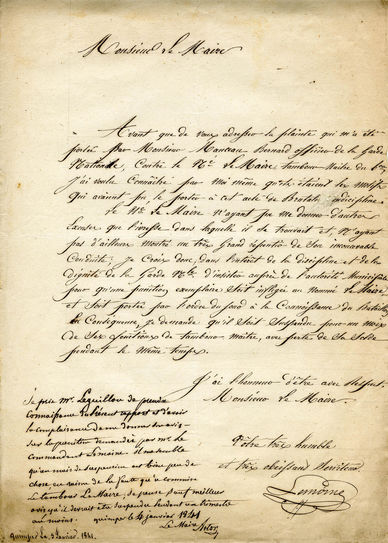 Monsieur Le Maire
Avant que de vous adresser la plainte qui m'a été
portée par Monsieur Manceau Bernard officier de la Garde
Nationale, Contre le Né Le Maire Tambour Maitre du
J'ai voulu Connaître par moi même quels étaient les motifs
Qui avaient pu le porter à cet acte de Brutale indiscipline
Le Né Le Maire n'ayant pu me donner d'autre
Excuse que l'ivresse dans laquelle il se trouvait et, n'ayant
pas d'ailleurs montré un très Grand repentir de Son inconcevable
Conduite; Je Crois donc, dans l'intérêt de la discipline et de la
dignité de la Garde Nle d'insister auprès de l'autorité Municipale
pour qu'une punition exemplaire Soit infligée au Nommé Le Maire
et Soit portée par l'ordre du jour à la Connaissance du Bataillon
En Conséquence, je demande qu'il Soit Suspendu pour un mois
de Ses fonctions de tambour-maitre, avec perte de Sa Solde
pendant le même temps.
J'ai l'honneur d'être avec Respect.
Monsieur Le Maire.
Votre très humble
et très obéissant Serviteur
Lemoine
Je prie Mr. Leguillou de prendre
connaissance du présent rapport et d'avoir
la complaisance de me donner son avis
sur la punition demandée par Mr. le
commandant Lemoine. il me semble
qu'un mois de suspension est bien peu de
chose en raison de la faute qu'a commise
le tambour Le Maire, je pense sauf meilleur
avis qu'il devrait être suspendu pendant un trimestre
au moins. quimper le 4 janvier 1841
Le Maire
Quimper Le 3 Janvier 1841.